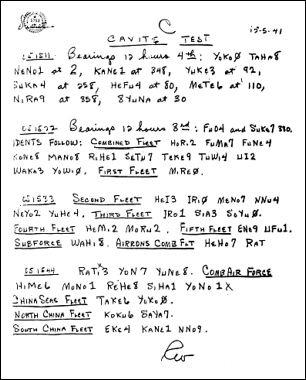 C
CAVITE TEST
12-5-41
CS1511 Bearings 12 hours 4th: YOKO TAHA8
NENO1 at 2, KANE1 at 348, YUKE3 at 92,
SUKA4 at 258, HEFU4 at 80, METE6 at 110,
NIRA9 at 358, 8YUNA at 30
Bearings 12 hours 3rd:
IDENTS FOLLOW: COMBINED FLEET HOR.2 FUMA7 FUNE4
KONE8 MANO8 RIHE1 SETU7 TEKE9 TUWI4 UI2
WAKA3 YOWI0. FIRST FLEET MIRE0.
CS1533 SECOND FLEET HEI3 IRI0 MENO7 NNU4
NEYO2 YUHE4, THIRD FLEET IRO1 SIA3 SOYU0.
FOURTH FLEET HEMI.2 MORU2. FIFTH FLEET ENO9 UFU1.
SUBFORCE WAHI8. AIRRONS COMB FLT HEHO7 RAT
CS1544 RATI3 YON7 YUNE8. COMB AIR FORCE
HIME6 MONO1 REHE8 SIHA1 YONO1X
CHINA SEAS FLEET TAKE6 YOKO0.
NORTH CHINA FLEET KOKU6 SAYA7.
SOUTH CHINA FLEET EKE4 KANE1 NNO9.